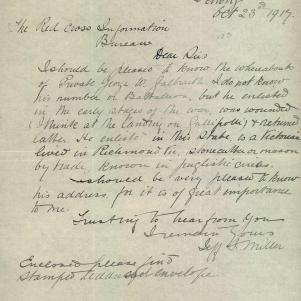 Oct 23rd 1917.
The Red Cross Information
Bureau
Dear Sirs
I should be pleased to know the whereabouts
of Private George W. Galbraith I do not know
his number or Battalion, but he enlisted
in the early stages of the war, was wounded
(I think at the landing on Gallipoli) & returned
latter. He enlisted in this State, is a Victorian
lived in Richmond Vic, stonecutter or mason
by trade, known in pugilistic circles.
I should be very pleased to know
his address for it is of great importance
to me.
Trusting to hear from you
I remain Yours
Miller
Enclosed please find
Stamped & addressed envelope